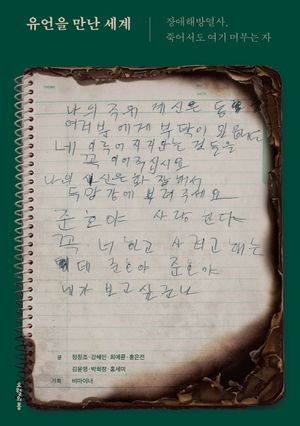 유언을 만난 세계
장애해방열사,
죽어서도 여기 머무는 자
나의 죽위
여러분에게 부탁이 있읍니다
네 이루어지지 않는 것들을
꼭 이어주십시요
나의 시신은 화장해서
두만강에 뿌려주세요
준호야 사랑한다
꼭 너하고 살려고 해는
데 준호야 준호야
내가 보고 싶구나
글 정창조·강혜민·최예륜·홍은전
김윤영·박희정·홍세미
기획 비마이너